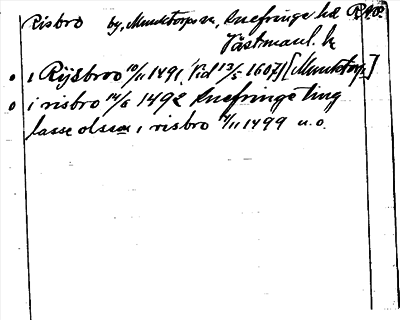 Risbro by, Munktorps sn, Snefringe hd RAP.
Västmanl. l.
i Rijsbroo 10/11 1491, Vid 13/5 1607 [Munktorp]
i risbro 14/6 1492 Snefringe ting
lasse olsson i risbro 4/11 1499 u.o.